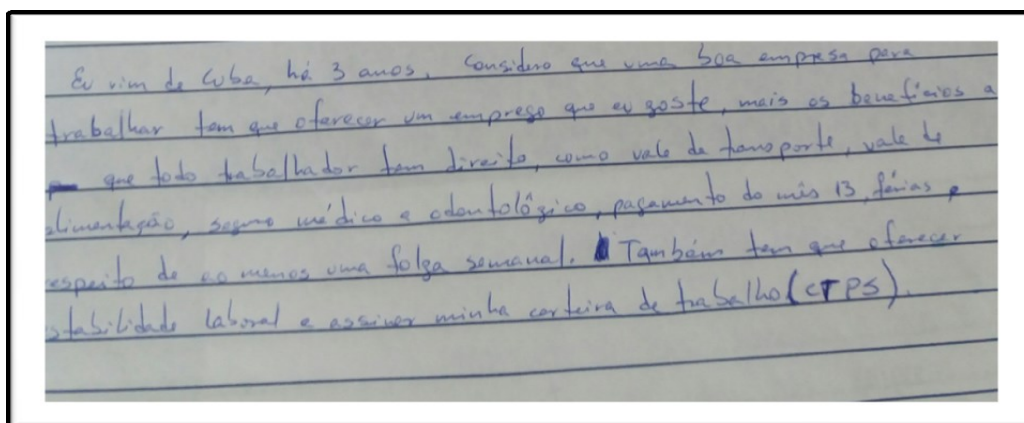 Eu vim de Cuba, há 3 anos. Considero que uma boa empresa para
trabalhar tem que oferecer um emprego que eu goste, mais os benefícios a
que todo trabalhador tem direito, como vale de transporte, vale de
alimentação, seguro médico e odontológico, pagamento do mês 13, férias e
respeito de ao menos uma folga semanal. Também tem que oferecer
stabilidade laboral e assinar minha carteira de trabalho (CTPS).